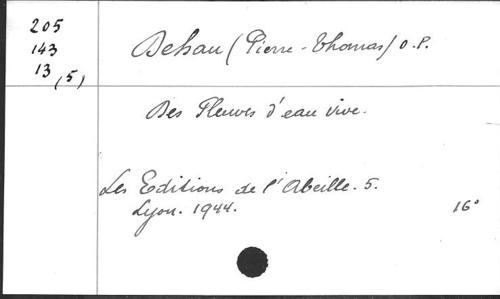 205
143
13 (5)
Dehau (Pierre-Thomas) O.P.
Des Fleuves d'eau vive.
Les Editions de l'Abeille. 5.
Lyon. 1944.
16°